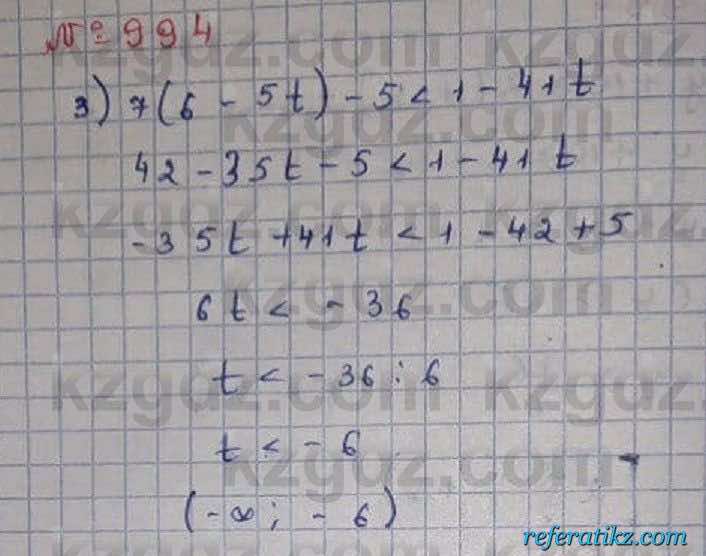 № 994
3) 7(6 - 5t) - 5 < 1 - 41t
42 - 35t - 5 < 1 - 41t
-35t + 41t < 1 - 42 + 5
6t < - 36
t < - 36 : 6
t < - 6
(-∞; - 6)
kzgdz.com
referatikz.com